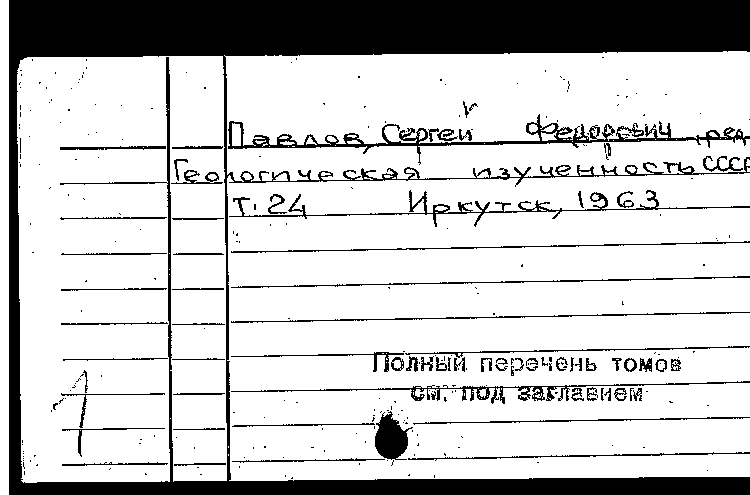 Павлов, Сергей Федорович, ред
Геологическая изученность СССР
Т. 24 Иркутск, 1963
Полный перечень томов
см. под заглавием
1